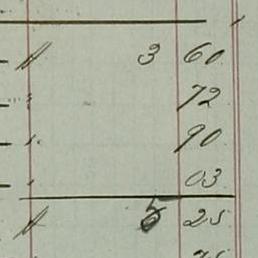 3 60
72
90
03
5 25